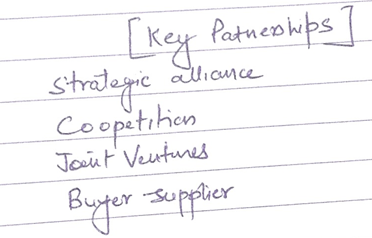 [Key Patnerships]
Strategic alliance
Coopetition
Joint Ventures
Buyer-supplier